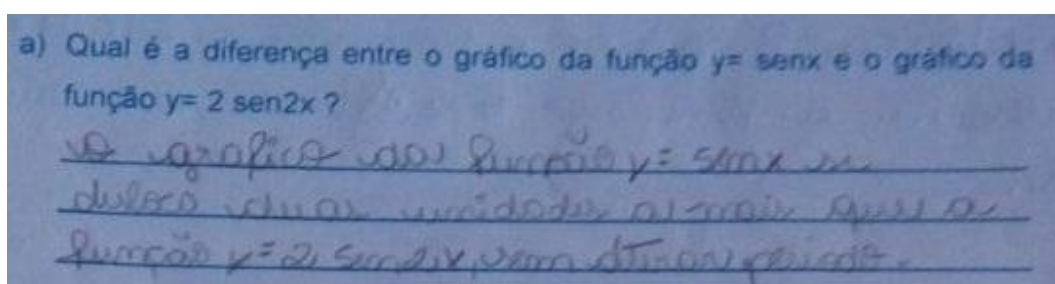 a) Qual é a diferença entre o gráfico da função y= senx e o gráfico da
função y= 2 sen2x ?
o gráfico da função y= senx se
duas unidades a mais que a
função y=2 sen2x, sem